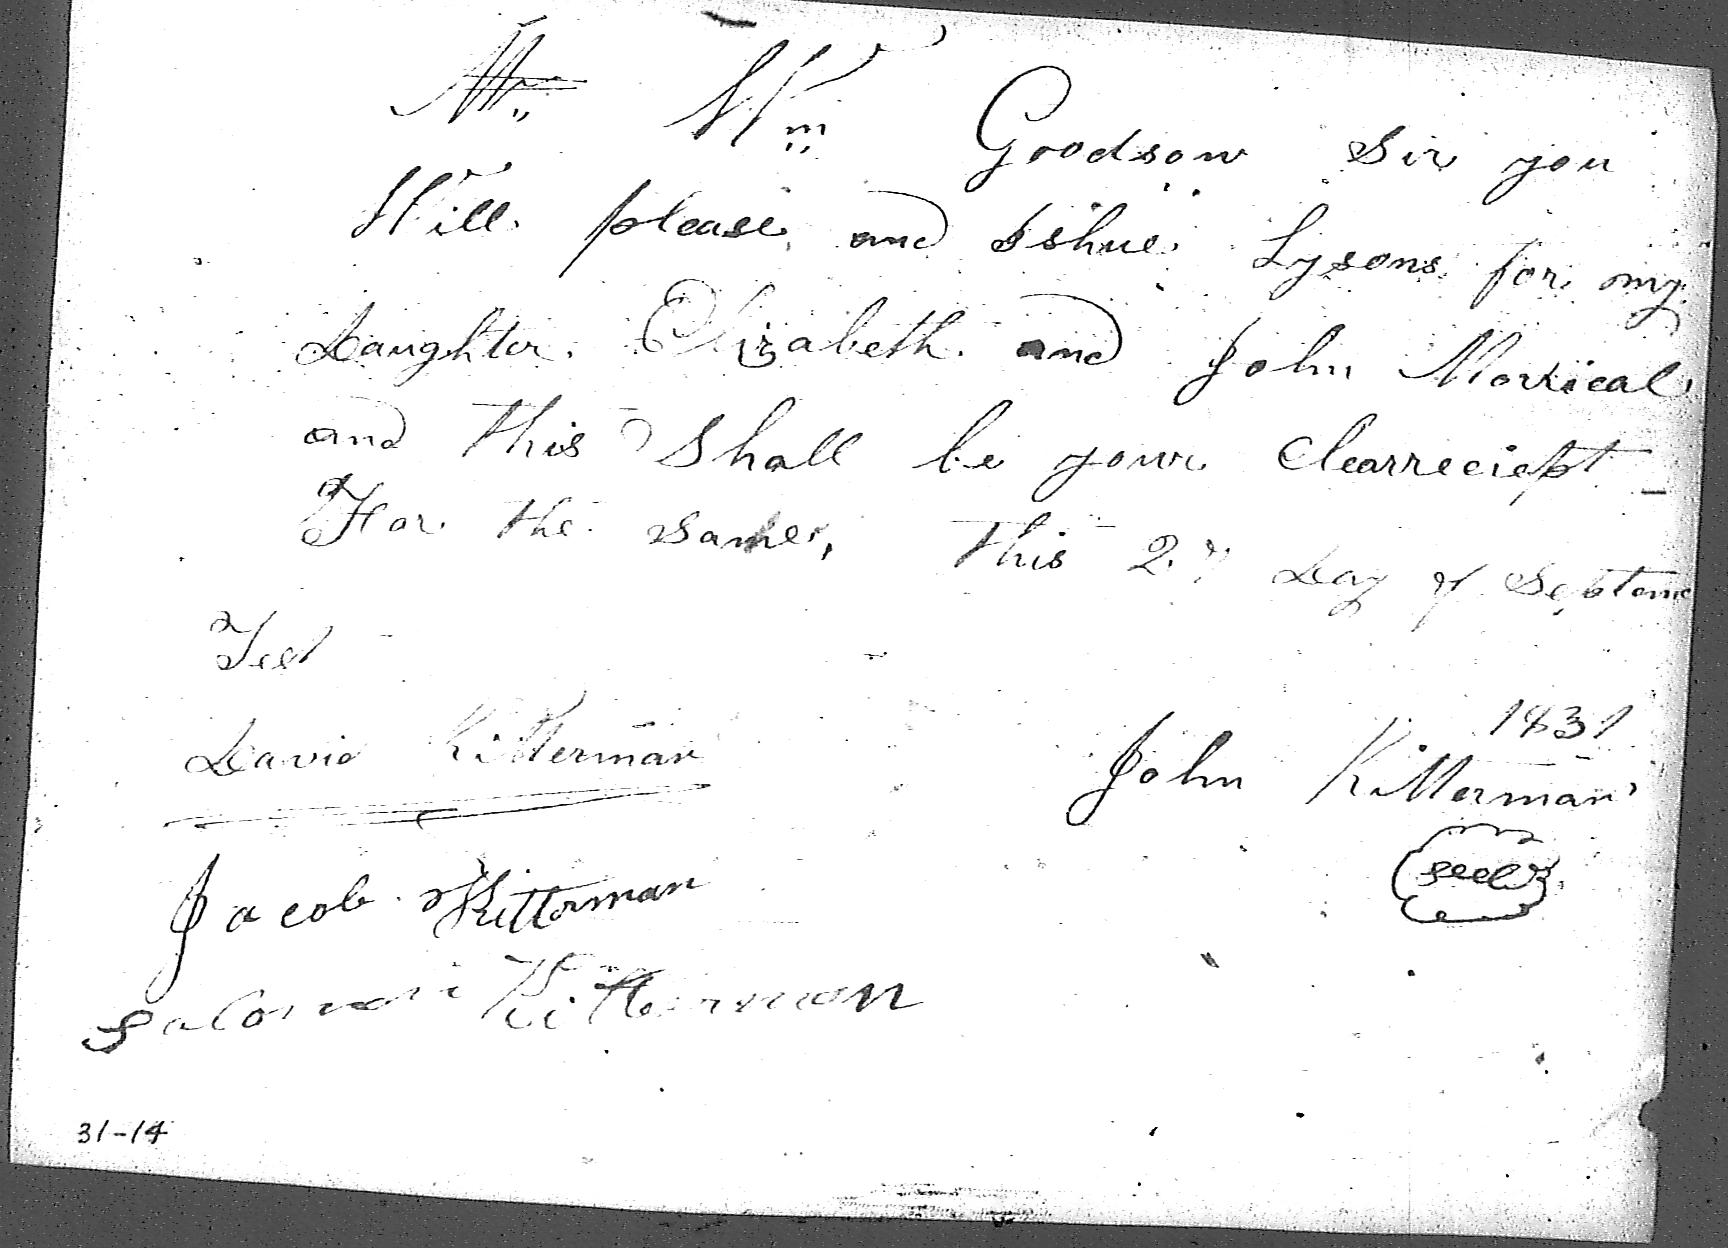 Mr Wm Goodson Sir you
Will please and Ishue Lysons for my
Daughter Elizabeth and John Morrical
and this Shall be your Clearreciept
For the same, this 27 Day of Septem
Test
1831
David Kitterman John Kitterman
Seel
Jacob Kitterman
Salomon Kitterman
31-14